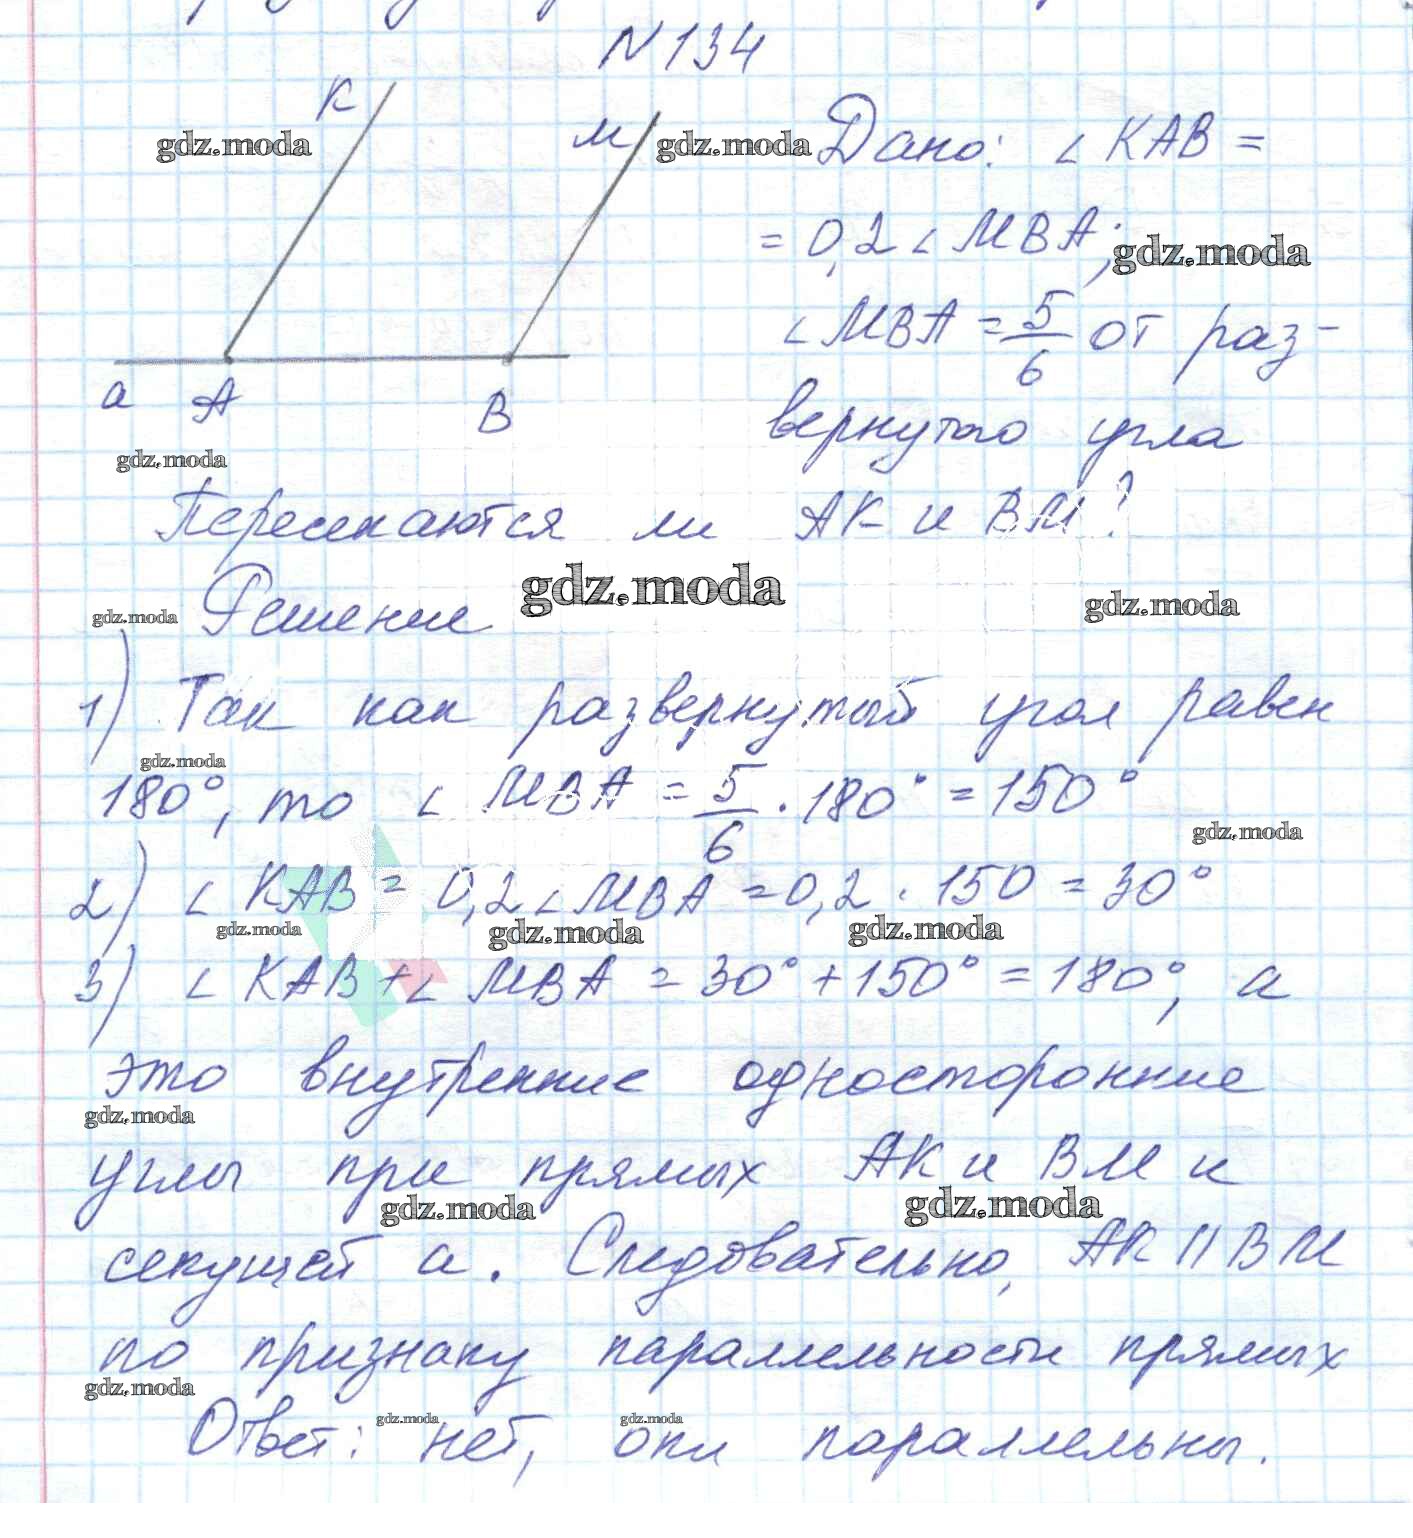 N 134
К
М
gdz.moda
gdz.moda
Дано: ∠ КАВ =
= 0,2 ∠ МВА;
gdz.moda
∠ МВА = 5/6 от раз-
а А В
вернутого угла
gdz.moda
Пересекаются ли АК и ВМ?
gdz.moda
Решение
gdz.moda
gdz.moda
1) Так как развернутый угол равен
gdz.moda
180°, то ∠ МВА = 5/6 · 180° = 150°
gdz.moda
2) ∠ КАВ = 0,2 ∠ МВА = 0,2 · 150 = 30°
gdz.moda
gdz.moda
gdz.moda
3) ∠ КАВ + ∠ МВА = 30° + 150° = 180°, а
это внутренние односторонние
gdz.moda
углы при прямых АК и ВМ и
gdz.moda
gdz.moda
секущей а. Следовательно, АК || ВМ
по признаку параллельности прямых
gdz.moda
gdz.moda
gdz.moda
Ответ: нет, они параллельны.